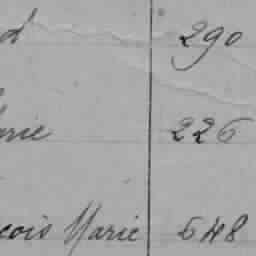 d 290
arie 226
çois Marie 548